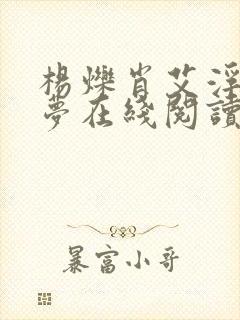 楊爍肖艾淫
夢在綫閱讀
暴富小哥